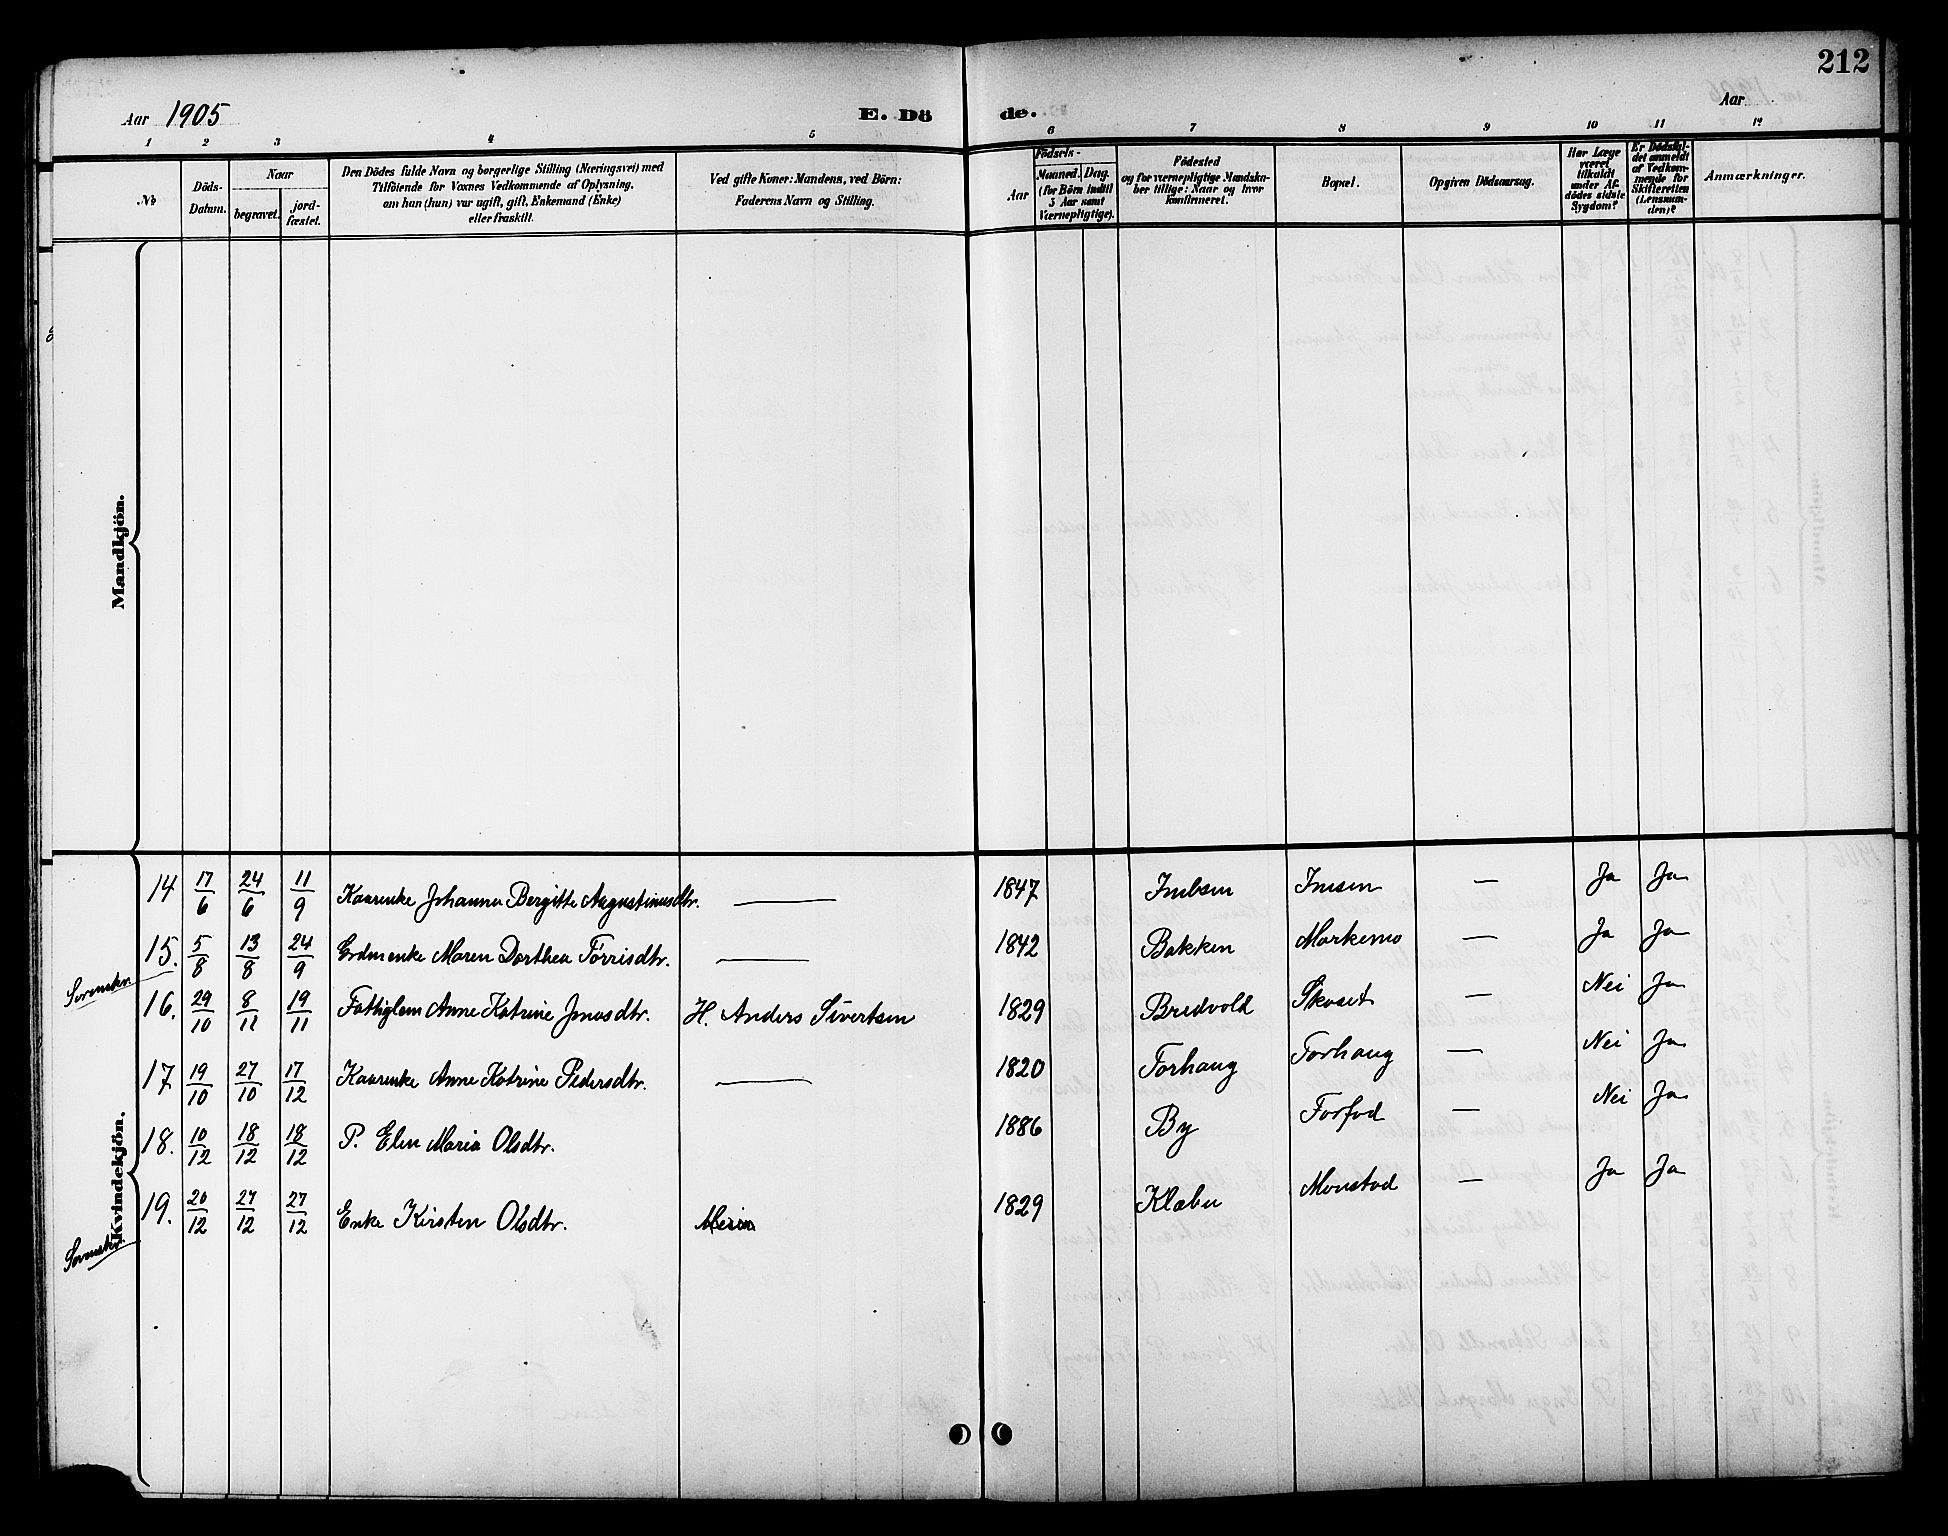 212
Aar 1905
E. Dö de.
Aar
1 2 3 4 5 6 7 8 9 10 11 12
No
Döds-Datum.
Naar
begravet.
jordfæstet.
Den Dödes fulde Navn og borgerlige Stilling (Næringsvei) med
Tilföiende for Voxnes Vedkommende af Oplysning,
om han (hun) var ugift, gift, Enkemand (Enke)
eller fraskilt.
Ved gifte Koner: Mandens, ved Börn:
Faderens Navn og Stilling.
Födsels-
Aar
Maaned. Dag.
(for Börn indtil
5 Aar samt
Værnepligtige).
Födested
og for værnepligtige Mandskaber tillige: Naar og hvor
konfirmeret.
Bopæl.
Opgiven Dödsaarsag.
Har Læge
været
tilkaldt
under Afdödes sidste
Sygdom?
Er Dödsfaldet anmeldt
af Vedkommende for
Skifteretten
(Lensmanden)?
Anmærkninger.
Mandkjön.
Kvindekjön.
14 17/6 24/6 11/9 Kaarenke Johanna Bergitte Augustinusdtr. — 1847 Imbsen Imsen — Ja Ja
15. 5/8 13/8 24/9 Grdmenke Maren Dorthea Torrisdtr. — 1842 Bakken Markemo — Ja Ja
16. 29/10 8/11 19/11 Fattiglem Anne Katrine Jonasdtr. H. Anders Sivertsen 1829 Bredvold Skaset — Nei Ja
17 19/10 27/10 17/12 Kaarenke Anne Katrine Pedersdtr. — 1820 Torhaug Torhaug — Nei Ja
18. 10/12 18/12 18/12 P. Elen Maria Olsdtr. 1886 By Forfod — Nei Ja
19. 20/12 27/12 27/12 Enke Kirsten Olsdtr. 1829 Klæbu Monstad — Ja Ja